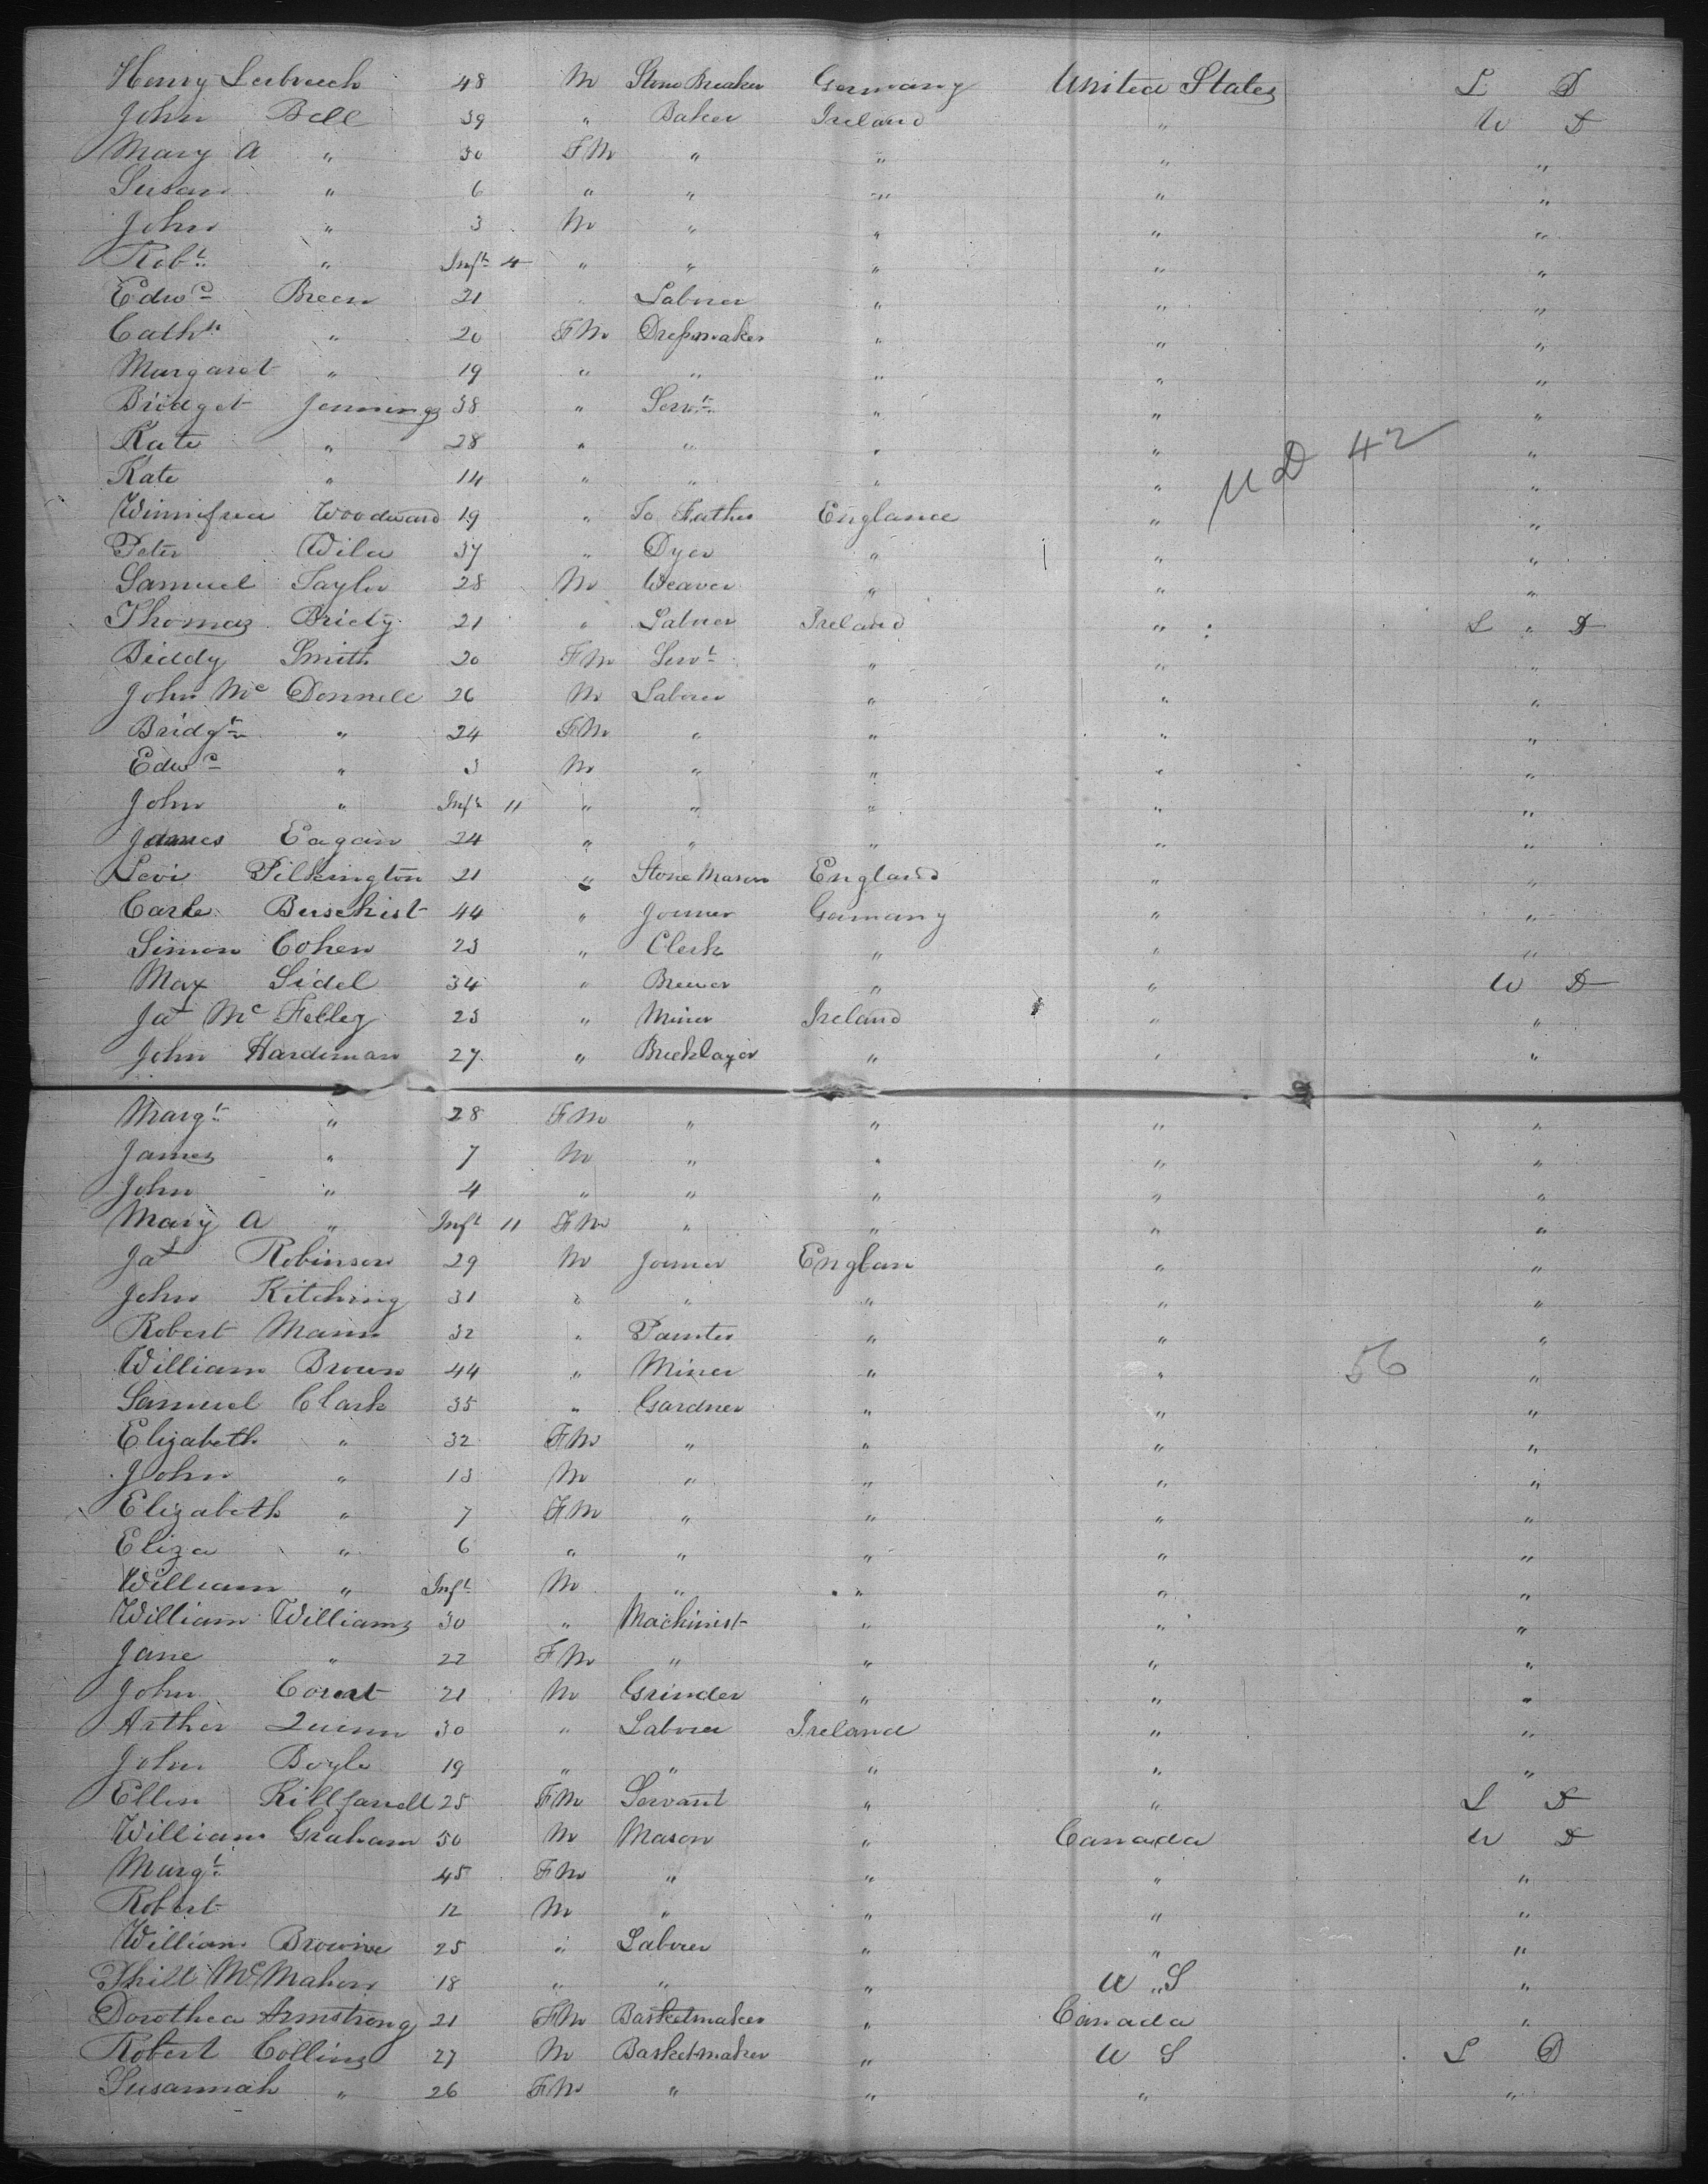 Henry Leebrech 48 M Stone Breaker Germany United States L D
John Bell 39 " Baker Ireland " W D
Mary A " 30 FM " " " "
Susan " 6 " " " " "
John " 3 M " " " "
Robt " Inft 4 " " " " "
Edwd Breen 21 " Laborer " " "
Cathe " 20 FM Dressmaker " " "
Margaret " 19 " " " " "
Bridget Jennings 38 " Servt " " "
Kate " 28 " " " " "
MD 42
Kate " 14 " " " " "
Winnifred Woodward 19 " To Father England " "
Peter Wild 37 " Dyer " " "
Samuel Taylor 28 M Weaver " " "
Thomas Bridy 21 " Laborer Ireland " L " D
Biddy Smith 20 FM Servt " " "
John Mc Donnell 26 M Laborer " " "
Bridgt " 24 FM " " " "
Edwd " 3 M " " " "
John " Inft 11 " " " " "
James Eagan 24 " " " " "
Levi Pilkington 21 " Stone Mason England " "
Carle Buschist 44 " Joiner Germany " "
Simon Cohen 23 " Clerk " " "
Max Sidel 34 " Brewer " " W D
Jas Mc Felley 23 " Miner Ireland " "
John Hardiman 27 " Bricklayer " " "
Margt " 28 FM " " " "
James " 7 M " " " "
John " 4 " " " " "
Mary A " Inft 11 FM " " " "
Jas Robinson 29 M Joiner Englan " "
John Kitching 31 " " " " "
Robert Mann 32 " Painter " " "
William Brown 44 " Miner " " 56 "
Samuel Clark 35 " Gardner " " "
Elizabeth " 32 FM " " " "
John " 13 M " " " "
Elizabeth " 7 FM " " " "
Eliza " 6 " " " " "
William " Inft M " " " "
William Williams 30 " Machinist " " "
Jane " 22 FM " " " "
John 21 M Grinder " " "
Arther Quinn 30 " Laborer Ireland " "
John Boyle 19 " " " " "
Ellen 25 FM Servant " " L D
William Graham 50 M Mason " Canada W D
Margt 45 FM " " " "
Robert 12 M " " " "
William Browne 25 " Laborer " " "
Phill McMahon 18 " " " U " S "
Dorothea Armstrong 21 FM Basketmaker " Canada "
Robert Collins 27 M Basketmaker " U S L D
Susannah " 26 FM " " " "